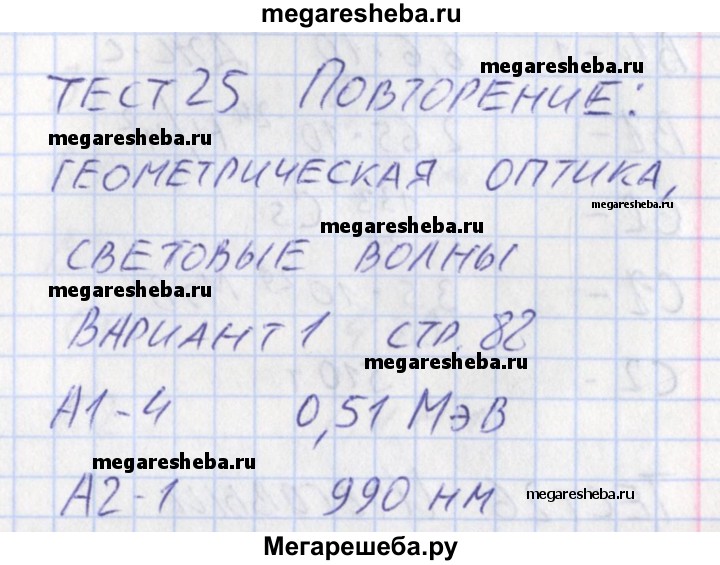 megaresheba.ru
megaresheba.ru
ТЕСТ 25 ПОВТОРЕНИЕ:
megaresheba.ru
ГЕОМЕТРИЧЕСКАЯ ОПТИКА,
megaresheba.ru
megaresheba.ru
СВЕТОВЫЕ ВОЛНЫ
megaresheba.ru
ВАРИАНТ 1 СТР. 82
megaresheba.ru
А1-4 0,51 МэВ
megaresheba.ru
А2-1 990 нм
megaresheba.ru
Мегарешеба.ру